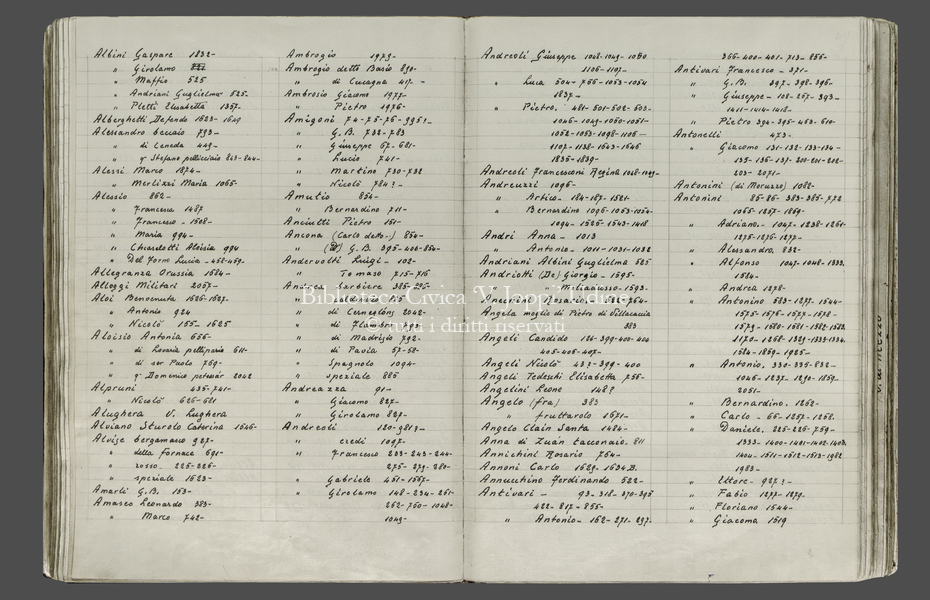 Albini Gaspare 1832-
" Girolamo
" Maffio 525
" Andriani Guglielma 525-
" Pletti Elisabetta 1357-
Alberghetti Defendo 1623-1649
Alessandro beccaio 793-
" di Ceneda 449-
" qm Stefano pellicciaio 843-844-
Alessi Marco 1874-
" Merlizzi Maria 1065-
Alessio 862-
" Francesca 1487
" Francesco - 1508-
" Maria 994-
" Chiarotti Aloisia 994
" Del Forno Lucia - 458-459-
Allegranza Orussia 1684-
Alloggi Militari 2057-
Aloi Benvenuta 1626-1627-
" Antonio 924
" Nicolò 155-1625
Aloisio Antonia 656-
" di ser Paolo 759-
" 2042
Alpruni 435-741-
" Nicolò 626-681
Alughera V. Lughera
Alviano Sturolo Caterina 1646-
Alvise bergamasco 927-
" della fornace 691-
" rosso 225-226-
" speziale 1623-
Amarli G.B. 153-
Amaseo Leonardo 383-
" Marco 742-
Ambrogio 1979-
Ambrogio detto Basio 890-
" di Cucagna 417-
Ambrosio Giacomo 1977-
" Pietro 1976-
Amigoni 74-75-76-
" G.B. 782-783
" Giuseppe 67-681-
" Lucio 741-
" Martino 730-732
" Nicolò 784?-
Amutio 854-
" Bernardino 711-
Anciulti Pietro 151-
Ancona (Carlo detto-) 854-
" G.B. 395-400-854-
Andervolti Luigi - 102-
" Tomaso 715-716
Andrea barbiere 385-386-
" di
" di 2042-
" di
" di Madrisio 792-
" di Paola 57-58-
" Spagnolo 1094-
" speziale 885
Andreazza 91-
" Giacomo 827-
" Girolamo 827-
Andreoli 120-981?-
" eredi 1097-
" Francesco 203-243-244-
275-279-280-
" Gabriele 451-1567-
" Girolamo 148-234-261-
262-750-1048-
1049-
Andreoli Giuseppe 1048-1049-1050
1106-1107-
" Luca 504-766-1053-1054
1837-
" Pietro, 481-501-502-503-
1046-1049-1050-1051-
1052-1053-1098-1106-
1107-1138-1643-1646
1835-1839-
Andreoli Francesconi Regina 1048-1109-
Andreuzzi 1096-
" Artico- 184-187-1521-
" Bernardino 1096-1053-1054-
1094-1525-1543-1418
Andri Anna - 1013
" Antonio - 1011-1031-1032
Andriani Albini Guglielma 525
Andriotti (De) Giorgio - 1595-
" Miliadusso - 1593-
Rosario 764-
Angela moglie di Pietro di Villacaccia
383
Angeli Candido 126-399-400-404
405-406-407-
Angeli Nicolò 437-399-400
Angeli Tedeschi Elisabetta 756-
Angelini Leone 148?
Angelo (fra) 383
" fruttarolo 1671-
Angelo Clain Santa 1484-
Anna di Zuan tacconaio, 811
Annichini Rosario 764-
Annoni Carlo 1629-1634B.
Annucchino Ferdinando 522-
Antivari - 93-318-370-395
422-817-855-
" Antonio - 162-271-297-
366-400-401-713-856-
Antivari Francesco - 371-
" G.B. 397-398-396-
" Giuseppe - 108-257-343-
1411-1414-1418-
" Pietro 394-395-463-610-
Antonelli 473-
" Giacomo 131-132-133-134-
135-136-137-200-201-202-
203-2071-
Antonini (di Moruzzo) 1082-
Antonini 85-86-383-385-772
1065-1257-1869-
" Adriano,-1047-1238-1261-
1275-1276-1277-
" Alessandro, 832-
" Alfonso 1047-1048-1333,
1584-
" Andrea 1278-
" Antonino 583-1277-1544-
1575-1576-1577-1578-
1579-1580-1581-1582-1583,
1170-1268-1329-1333-1334
1584-1859-1925-
" Antonio, 330-335-832-
1046-1237-1290-1859-
2051-
" Bernardino, 1262-
" Carlo - 66-1257-1258,
" Daniele, 225-226-759-
1333-1400-1401-1402-1403,
1404-1511-1512-1513-1982
1983-
" Ettore- 927?-
" Fabio 1277-1279-
" Floriano 1544-
" Giacoma 1519
Biblioteca Civica V. Joppi Udine
© tutti i diritti riservati